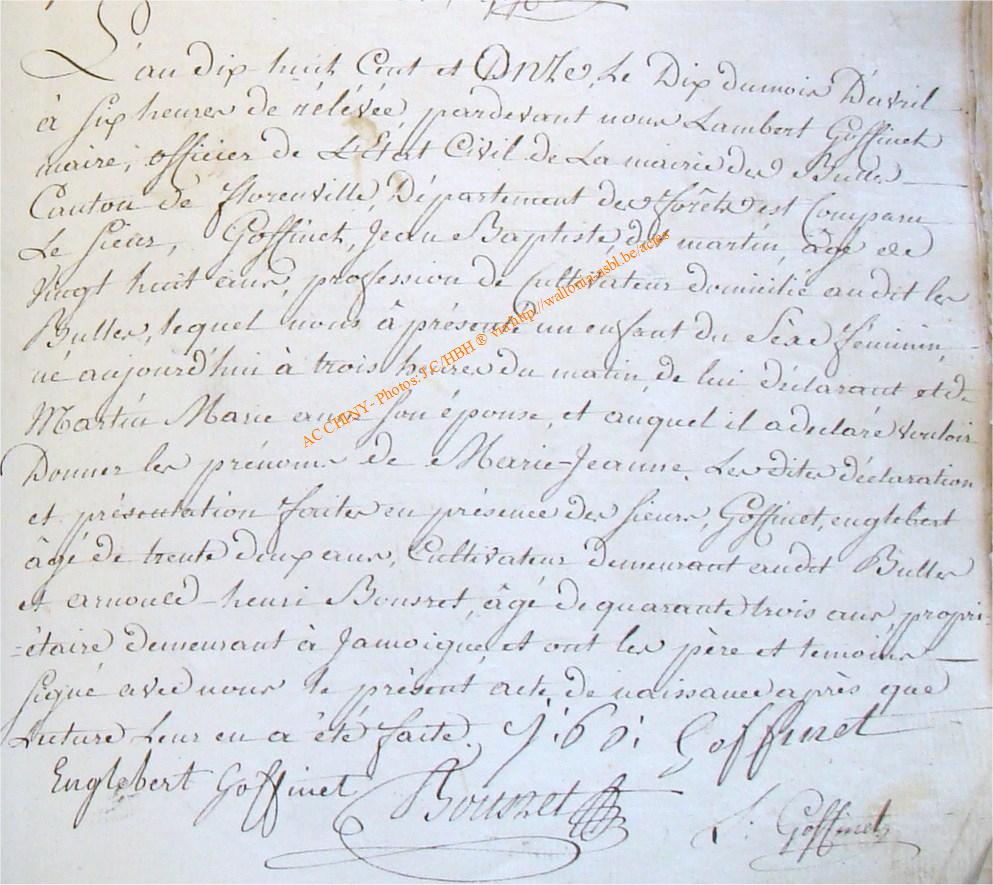 L'an dix huit Cent et Onze, Le Dix du mois D'avril
à six heures de rélévée pardevant nous Lambert Goffinet
maire, officier de L'État Civil de La mairie des Bulles
Canton de florenville, Département des forêts est Comparu
Le sieur, Goffinet, Jean Baptiste, dit martin âgé de
Vingt huit ans, profession de Cultivateur domicilié audit les
Bulles, lequel nous à présenté un enfant du Sèxe féminin,
né aujourd'hui à trois heures du matin, de lui déclarant et de
Martin Marie anne Son épouse, et auquel il a déclaré vouloir
Donner les prénoms de Marie-Jeanne. Les dites déclaration
et présentation faites en présence des sieurs, Goffinet, englebert
âgé de trente deux ans, Cultivateur demeurant audit Bulles
et arnould-henri Bousret, âgé de quarante trois ans, propri-
-étaire demeurant à Jamoigne, et ont les père et temoins
signé avec nous le présent acte de naissance après que
Lecture Leur en a été faite. J: b: Goffinet
Englebert Goffinet Bousret
L: Goffinet
AC CHINY - Photos: J.C/HBH ® via http://wallonia-asbl.be/actes